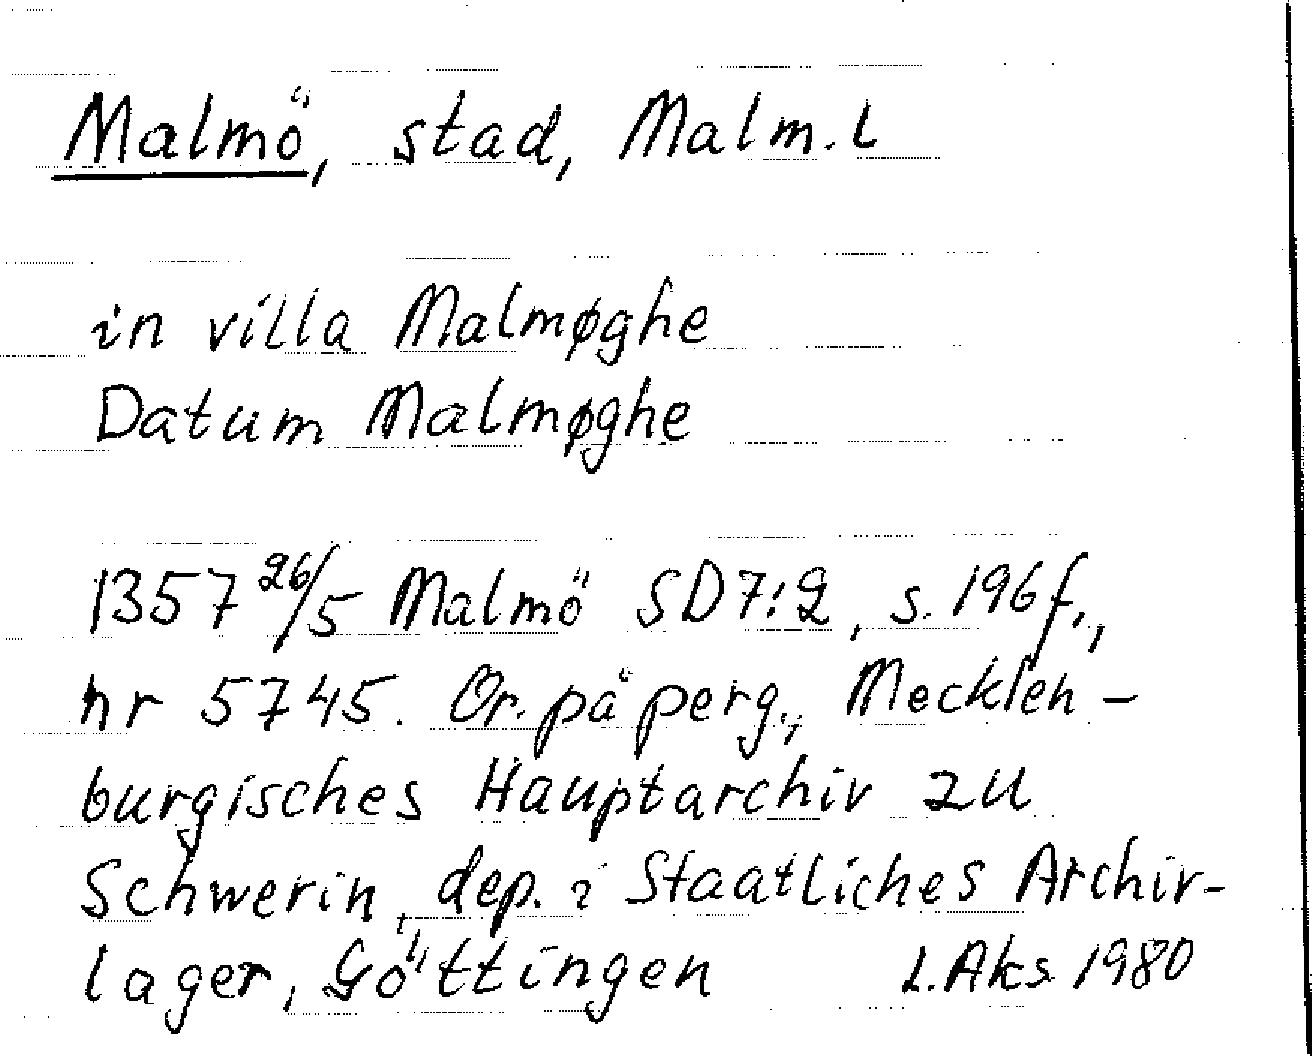 Malmö, stad, Malm. L
in villa Malmøghe
Datum Malmøghe
1357 26/5 Malmö SD 7:2, s. 196 f.,
nr 5745. Or. på perg., Mecklen-
burgisches Hauptarchiv zu
Schwerin, dep. i Staatliches Archiv-
lager, Göttingen L. Aks 1980